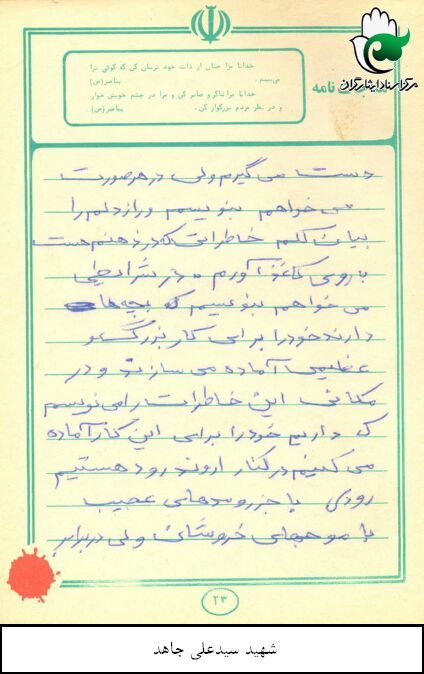 خدایا مرا چنان از ذات خود ترسان کن که گوئی ترا
می‌بینم. پیامبر(ص)
خدایا مرا شاکر و صابر کن و مرا در چشم خویش خوار
و در نظر مردم بزرگوار کن. پیامبر(ص)
نامه
مرکز اسناد ایثارگران
دست می گیرم ولی در هر صورت
می خواهم بنویسم و راز دلم را
بیان کنم خاطراتی که در ذهنم هست
با روی کاغذ آورم در شرایطی
می خواهم بنویسم که بچه ها
دارند خود را برای کار بزرگ و
عظیمی آماده می سازند و در
مکانی این خاطرات را می نویسم
که داریم خود را برای این کار آماده
می کنیم در کنار اروند رود هستیم
رودی با جزر و مدهای عجیب
با موجهای خروشان ولی در برابر
۲۳
شهید سیدعلی جاهد